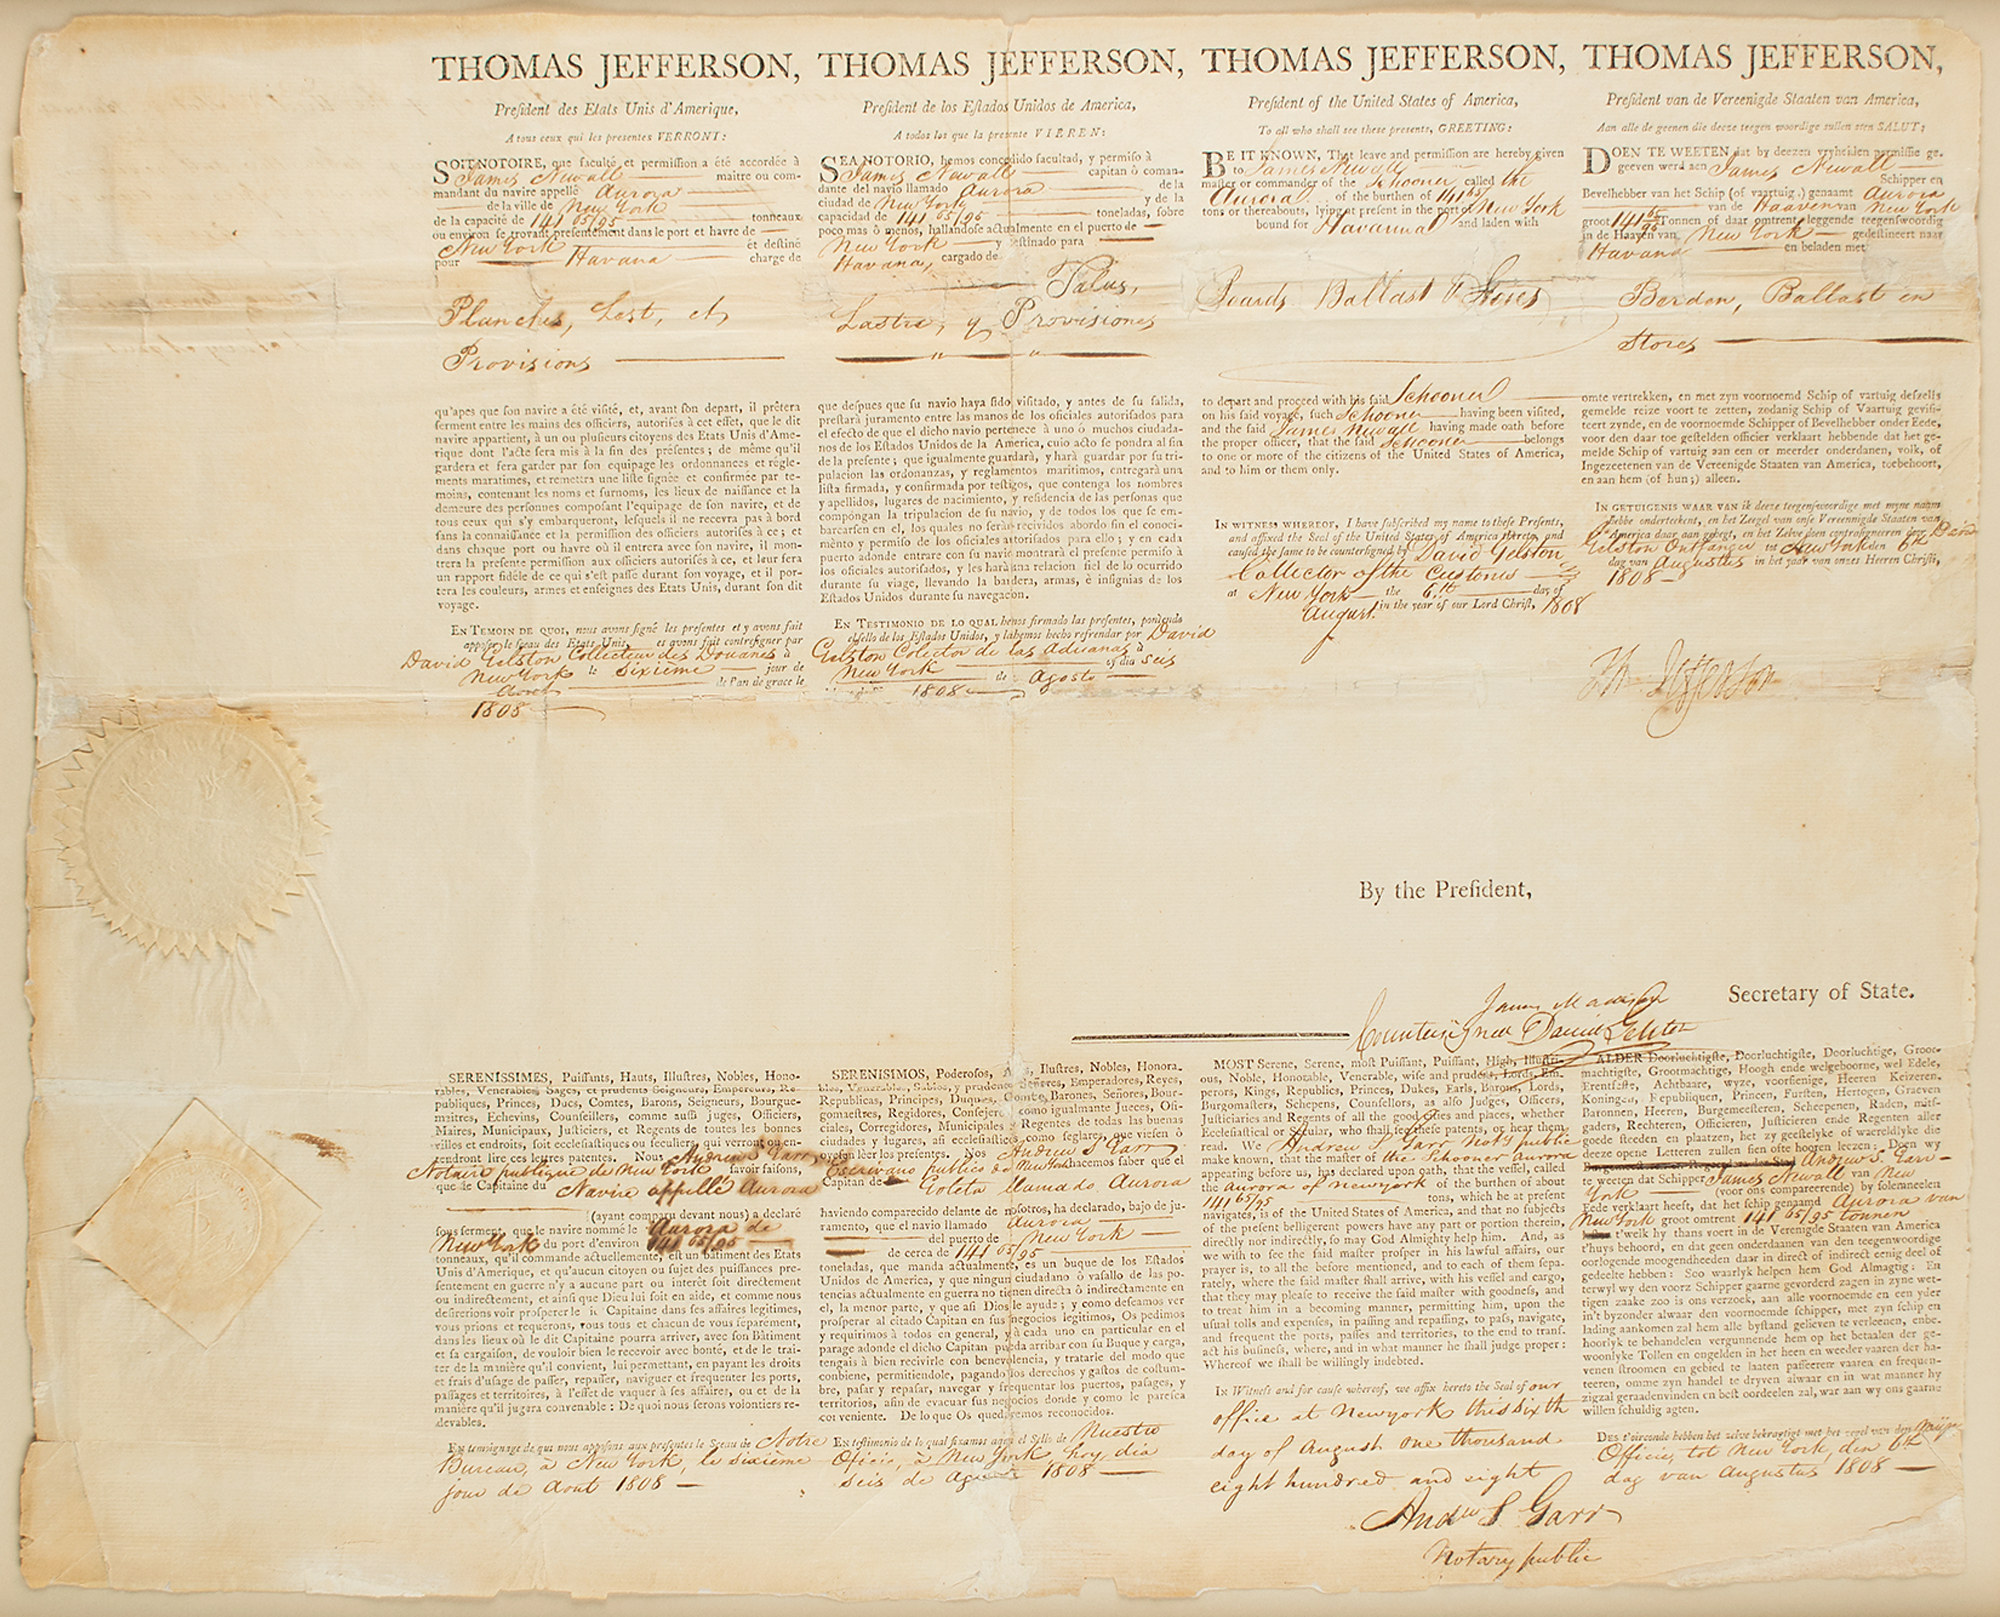 THOMAS JEFFERSON,
Preſident des Etats Unis d'Amerique,
A tous ceux qui les preſentes VERRONT:
SOIT NOTOIRE, que faculté et permiſſion a été accordée à
James Newall maitre ou com-
mandant du navire appellé Aurora
de la ville de New York
de la capacité de 141 65/95 tonneaux
ou environ ſe trovant preſentement dans le port et havre de
New York et deſtiné
pour Havana charge de
Planches, Lest, et
Proviſions
qu'apes que ſon navire a été viſité, et, avant ſon depart, il prêtera
ſerment entre les mains des officiers, autoriſés à cet effet, que le dit
navire appartient, à un ou pluſieurs citoyens des Etats Unis d'Ame-
rique dont l'acte ſera mis à la fin des préſentes; de même qu'il
gardera et fera garder par ſon equipage les ordonnances et régle-
ments maratimes, et remettra une liſte ſignée et confirmée par te-
moins, contenant les noms et ſurnoms, les lieux de naiſſance et la
demeure des perſonnes compoſant l'equipage de ſon navire, et de
tous ceux qui s'y embarqueront, leſquels il ne recevra pas à bord
ſans la connaiſſance et la permiſſion des officiers autoriſés à ce; et
dans chaque port ou havre où il entrera avec ſon navire, il mon-
trera la preſente permiſſion aux officiers autoriſés à ce, et leur fera
un rapport fidéle de ce qui s'eſt paſſé durant ſon voyage, et il por-
tera les couleurs, armes et enſeignes des Etats Unis, durant ſon dit
voyage.
EN TEMOIN DE QUOI, nous avons ſigné les preſentes et y avons fait
appoſer le ſceau des Etats Unis, et avons fait contreſigner par
David Gelston Collecteur des Douanes à
New York le sixième jour de
Aout de l'an de grace le
1808
THOMAS JEFFERSON,
Preſident de los Eſtados Unidos de America,
A todos los que la preſente VIEREN:
SEA NOTORIO, hemos concedido facultad, y permiſo à
James Newall capitan ò coman-
dante del navio llamado Aurora de la
ciudad de New York y de la
capacidad de 141 65/95 toneladas, ſobre
poco mas ò menos, hallandoſe actualmente en el puerto de
New York y deſtinado para
Havana, cargado de
Palus,
Lastre, y Provisiones
que deſpues que ſu navio haya ſido viſitado, y antes de ſu ſalida,
preſtará juramento entre las manos de los oficiales autoriſados para
el efecto de que el dicho navio pertenece à uno ó muchos ciudada-
nos de los Eſtados Unidos de la America, cuio acto ſe pondra al fin
de la preſente; que igualmente guardará, y hará guardar por ſu tri-
pulacion las ordonanzas, y reglamentos maritimos, entregará una
liſta firmada, y confirmada por teſtigos, que contenga los nombres
y apellidos, lugares de nacimiento, y reſidencia de las perſonas que
compongan la tripulacion de ſu navio, y de todos los que ſe em-
barcarſen en el, los quales no ſeràn recividos abordo ſin el conoci-
mènto y permiſo de los oficiales autoriſados para ello; y en cada
puerto adonde entrare con ſu navio montrará el preſente permiſo à
los oficiales autoriſados, y les harà una relacion fiel de lo ocurrido
durante ſu viage, llevando la bandera, armas, è inſignias de los
Eſtados Unidos durante ſu navegacion.
EN TESTIMONIO DE LO QUAL hemos firmado las preſentes, poniendo
el ſello de los Eſtados Unidos, y lahemos hecho refrendar por David
Gelston Colector de las Aduanas à
New York el dia seis
de Agosto
1808
THOMAS JEFFERSON,
Preſident of the United States of America,
To all who ſhall ſee theſe preſents, GREETING:
BE IT KNOWN, That leave and permiſſion are hereby given
to James Newall
maſter or commander of the Schooner called the
Aurora of the burthen of 141 65/
tons or thereabouts, lying at preſent in the port of New York
bound for Havanna and laden with
Boards Ballast & Stores
to depart and proceed with his ſaid Schooner
on his ſaid voyage, ſuch Schooner having been viſited,
and the ſaid James Newall having made oath before
the proper officer, that the ſaid Schooner belongs
to one or more of the citizens of the United States of America,
and to him or them only.
IN WITNESS WHEREOF, I have ſubſcribed my name to theſe Preſents,
and affixed the Seal of the United States of America thereto, and
cauſed the ſame to be counterſigned by David Gelston
Collector of the Customs
at New York the 6th day of
August in the year of our Lord Chriſt, 1808
THOMAS JEFFERSON,
Preſident van de Vereenigde Staaten van America,
Aan alle de geenen die deeze teegen woordige zullen zien SALUT:
DOEN TE WEETEN dat by deezen vryheiden permiſſie ge-
geeven werd aen James Newall
Schipper en
Bevelhebber van het Schip (of vaartuig.) genaamt Aurora
van de Haaven van New York
groot 141 65/95 Tonnen of daar omtrent, leggende teegenſwoordig
in de Haaven van New York gedeſtineert naar
Havana en beladen met
Borden, Ballast en
Stores
omte vertrekken, en met zyn voornoemd Schip of vartuig deſzelfs
gemelde reize voort te zetten, zodanig Schip of Vaartuig geviſi-
teert zynde, en de voornoemde Schipper of Bevelhebber onder Eede,
voor den daar toe geſtelden officier verklaart hebbende dat het ge-
melde Schip of vartuig aan een or meerder onderdanen, volk, of
Ingezeetenen van de Vereenigde Staaten van America, toebehoort,
en aan hem (of hun;) alleen.
IN GETUIGENIS WAAR VAN ik deeze teegenſwoordige met myne naam
hebbe onderteekent, en het Zeegel van onſe Vereennigde Staaten van
America daar aan gehegt, en het Zelve doen contraſigneeren door David
Gelston Ontfanger tot New York den 6th
dag van Augustus in het jaar van onzes Heeren Chriſti,
1808
Th Jefferson
By the Preſident,
James Madison Secretary of State.
Countersigned David Gelston
SERENISSIMES, Puiſſants, Hauts, Illuſtres, Nobles, Hono-
rables, Venerables, Sages, et prudents Seigneurs, Empereurs, Re-
publiques, Princes, Ducs, Comtes, Barons, Seigneurs, Bourgue-
maitres, Echevins, Counſeillers, comme auſſi juges, Officiers,
Maires, Municipaux, Juſticiers, et Regents de toutes les bonnes
villes et endroits, ſoit eccleſiaſtiques ou ſeculiers, qui verront ou en-
tendront lire ces lettres patentes. Nous Andrew S Garr
Notaire publique de New York ſavoir faiſons,
que le Capitaine du Navire appellé Aurora
(ayant comparu devant nous) a declaré
ſous ſerment, que le navire nommé le Aurora de
New York du port d'environ 141 65/95
tonneaux, qu'il commande actuellement, eſt un bâtiment des Etats
Unis d'Amerique, et qu'aucun citoyen ou ſujet des puiſſances pre-
ſentement en guerre n'y a aucune part ou interêt ſoit directement
ou indirectement, et ainſi que Dieu lui ſoit en aide, et comme nous
deſirerions voir proſperer le Capitaine dans ſes affaires legitimes,
vous prions et requerons, vous tous et chacun de vous ſeparément,
dans les lieux où le dit Capitaine pourra arriver, avec ſon Bâtiment
et ſa cargaiſon, de vouloir bien le recevoir avec bonté, et de le trai-
ter de la manière qu'il convient, lui permettant, en payant les droits
et frais d'uſage de paſſer, repaſſer, naviguer et frequenter les ports,
paſſages et territoires, à l'effet de vaquer à ſes affaires, ou et de la
manière qu'il jugara convenable: De quoi nous ſerons volontiers re-
devables.
En temoignage de qui nous appoſons aux preſentes le Sceau de Notre
Bureau, à New York, le sixième
jour de Aout 1808
SERENISIMOS, Poderoſos, Iluſtres, Nobles, Honora-
bles, Venerables, Sabios, y prudentes Señores, Emperadores, Reyes,
Republicas, Principes, Duques, Barones, Señores, Bour-
gomaeſtres, Regidores, Conſejeros como igualmante Jueces, Ofi-
ciales, Corregidores, Municipales y Regentes de todas las buenas
ciudades y lugares, aſi eccleſiaſticos como ſeglares, que vieſen ò
oyeſen lèer los preſentes. Nos Andrew S Garr
Escrivano publico de New York hacemos ſaber que el
Capitan de Goleta llamado Aurora
haviendo comparecido delante de noſotros, ha declarado, bajo de ju-
ramento, que el navio llamado Aurora
del puerto de New York
de cerca de 141 65/95
toneladas, que manda actualmente, es un buque de los Eſtados
Unidos de America, y que ningun ciudadano ò vaſallo de las po-
tencias actualmente en guerra no tienen directa ò indirectamente en
el, la menor parte, y que aſi Dios le ayude; y como deſeamos ver
proſperar al citado Capitan en ſus negocios legitimos, Os pedimos
y requirimos à todos en general, y à cada uno en particular en el
parage adonde el dicho Capitan pueda arribar con ſu Buque y carga,
tengais à bien recivirle con benevolencia, y tratarle del modo que
conbiene, permitiendole, pagando los derechos y gaſtos de coſtum-
bre, paſar y repaſar, navegar y frequentar los puertos, paſages, y
territorios, afin de evacuar ſus negocios donde y como le pareſca
conveniente. De lo que Os quedaremos reconocidos.
En teſtimonio de lo qual fixamos aqui el Sello de Nuestro
Oficio, à New York hoy dia
seis de Agosto 1808
MOST Serene, Serene, moſt Puiſſant, Puiſſant, High, Illuſtri-
ous, Noble, Honorable, Venerable, wiſe and prudent, Lords, Em-
perors, Kings, Republics, Princes, Dukes, Earls, Barons, Lords,
Burgomaſters, Schepens, Counſellors, as alſo Judges, Officers,
Juſticiaries and Regents of all the good cities and places, whether
Eccleſiaſtical or ſecular, who ſhall ſee theſe patents, or hear them
read. We Andrew S Garr Noty public
make known, that the maſter of the Schooner Aurora
appearing before us, has declared upon oath, that the veſſel, called
the Aurora of New york of the burthen of about
141 65/95 tons, which he at preſent
navigates, is of the United States of America, and that no ſubjects
of the preſent belligerent powers have any part or portion therein,
directly nor indirectly, ſo may God Almighty help him. And, as
we wiſh to ſee the ſaid maſter proſper in his lawful affairs, our
prayer is, to all the before mentioned, and to each of them ſepa-
rately, where the ſaid maſter ſhall arrive, with his veſſel and cargo,
that they may pleaſe to receive the ſaid maſter with goodneſs, and
to treat him in a becoming manner, permitting him, upon the
uſual tolls and expenſes, in paſſing and repaſſing, to paſs, navigate,
and frequent the ports, paſſes and territories, to the end to tranſ-
act his buſineſs, where, and in what manner he ſhall judge proper:
Whereof we ſhall be willingly indebted.
IN Witneſs and for cauſe whereof, we affix hereto the Seal of our
office at New york this sixth
day of August one thousand
eight hundred and eight
Andw S Garr
Notary public
ALDER Doorluchtigſte, Doorluchtige, Doorluchtige, Groot-
machtigſte, Grootmachtige, Hoogh ende welgeboorne, wel Edele,
Erentfeſte, Achtbaare, wyze, voorſienige, Heeren Keizeren,
Koningen, Republiquen, Princen, Furſten, Hertogen, Graeven
Baronnen, Heeren, Burgemeeſteren, Scheepenen, Raden, mitſ-
gaders, Rechteren, Officieren, Juſticieren ende Regenten aller
goede ſteeden en plaatzen, het zy geeſtelyke of waereldlyke die
deeze opene Letteren zullen ſien ofte hooren leezen: Doen wy
Andrew S. Garr
te weeten dat Schipper James Newall van New
York (voor ons compareerende) by ſolemneelen
Eede verklaart heeft, dat het ſchip genaamd Aurora van
New York groot omtrent 141 65/95 tonnen
t'welk hy thans voert in de Verenigde Staaten van America
t'huys behoord, en dat geen onderdaanen van den teegenwoordige
oorlogende moogendheeden daar in direct of indirect eenig deel of
gedeelte hebben: Soo waarlyk helpen hem God Almagtig: En
terwyl wy den voorz Schipper gaarne gevorderd zagen in zyne wet-
tigen zaake zoo is ons verzoek, aan alle voornoemde en een yder
in't byzonder alwaar den voornoemde ſchipper, met zyn ſchip en
lading aankomen zal hem alle byſtand gelieven te verleenen, enbe-
hoorlyk te behandelen vergunnende hem op het betaalen der ge-
woonlyke Tollen en ongelden in het heen en weeder vaaren der ha-
venen ſtroomen en gebied te laaten paſſeerere vaaren en frequen-
teeren, omme zyn handel te dryven alwaar en in wat manner hy
zigzal geraadenvinden en beſt oordeelen zal, war aan wy ons gaarne
willen ſchuldig agten.
DES t'oirconde hebben het zelve bekragtigt met het zegel van den mijne
Officie, tot New York, den 6th
dag van Augustus 1808